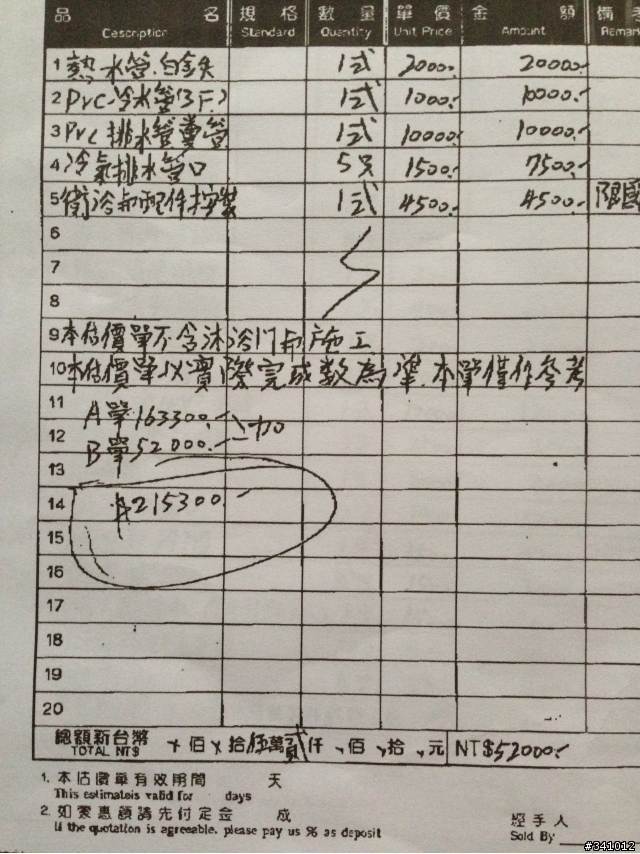 品 名 規 格 數 量 單 價 金 額 備
Description Standard Quantity Unit Price Amount Remar
1 熱水管.白鐵 1式 20000 20000
2 PVC冷水管(3F) 1式 10000 10000
3 PVC排水管糞管 1式 10000 10000
4 冷氣排水管口 5只 1500 7500
5 衛浴配件按裝 1式 4500 4500 限國
6
7
8
9 本估價單不含沐浴門施工
10 本估價單以實際完成數為準.本單僅作參考
11 A單163300 加
12 B單52000
13
14 $215300
15
16
17
18
19
20
總額新台幣 佰 拾伍萬貳仟 佰 拾 元 NT$52000
TOTAL NT$
1. 本估價單有效期間 天
This estimateis valid for days
2. 如蒙惠顧請先付定金 成
If the quotation is agreeable. please pay us % as deposit
經手人
Sold By
#341012